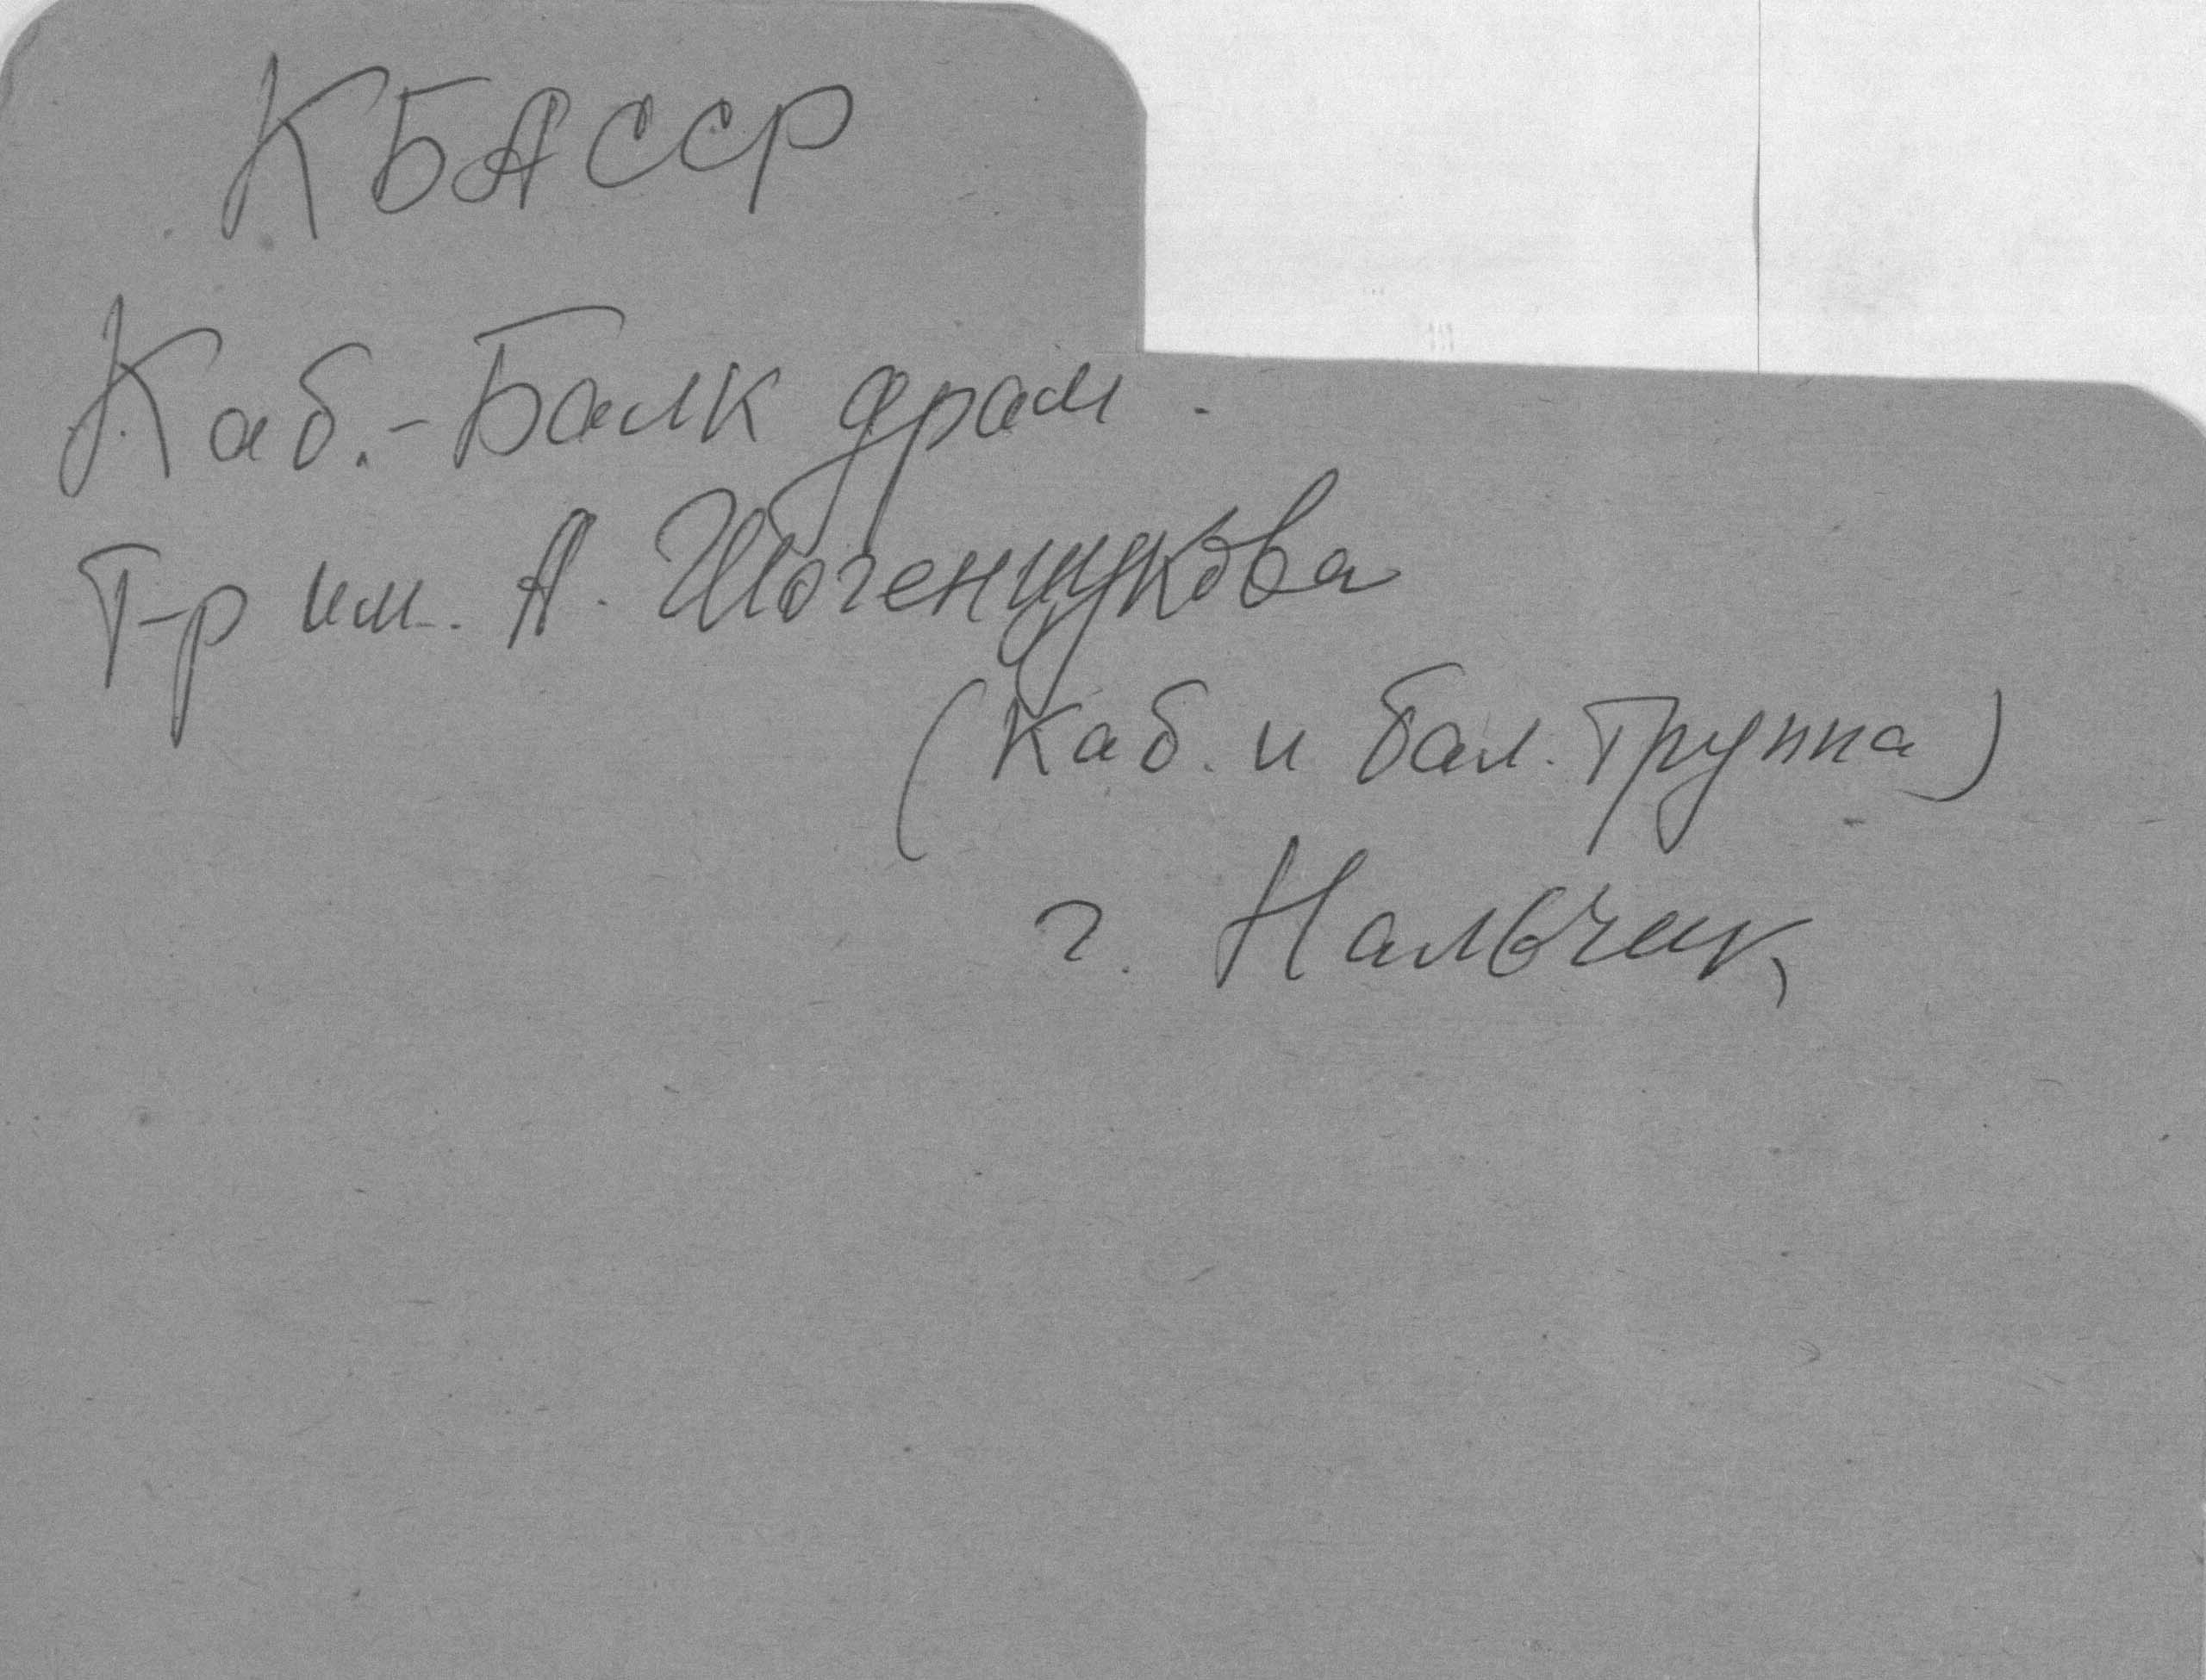 КБАССР
Каб.-Балк драм.
Т-р им. А. Шогенцукова
(Каб. и бал. труппа)
г. Нальчик